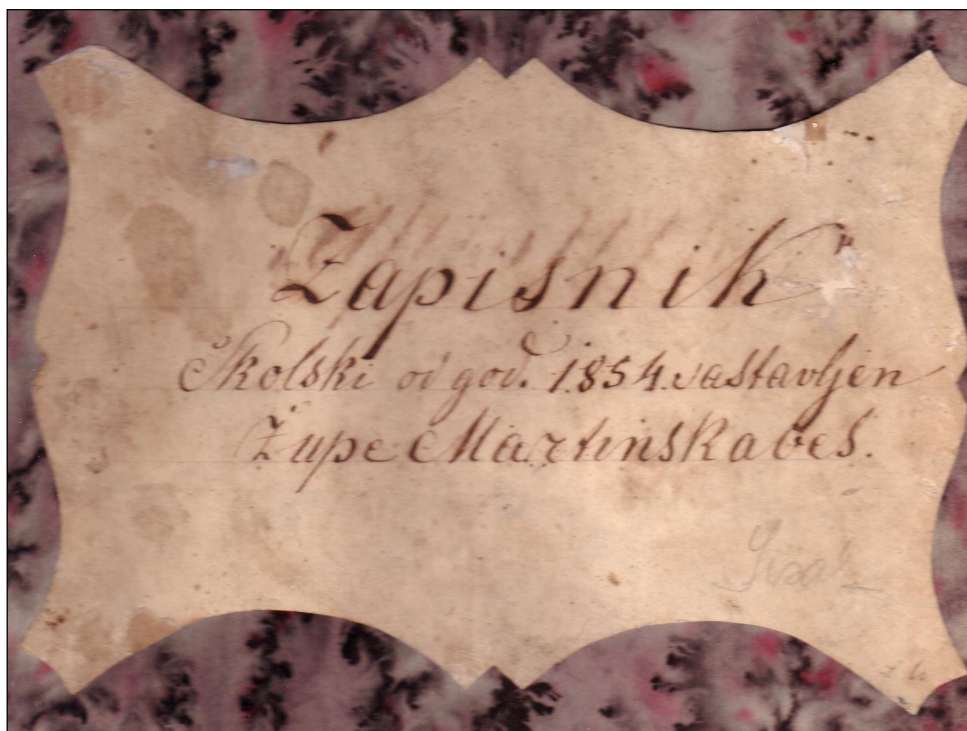 Zapisnik
Školski od god. 1854. sastavljen
Župe Martinskaves.
Sisak